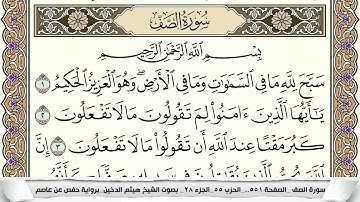 سُورَةُ الصَّفِّ
بِسْمِ اللَّهِ الرَّحْمَٰنِ الرَّحِيمِ
سَبَّحَ لِلَّهِ مَا فِي السَّمَٰوَٰتِ وَمَا فِي الْأَرْضِ ۖ وَهُوَ الْعَزِيزُ الْحَكِيمُ ١
يَٰٓأَيُّهَا الَّذِينَ ءَامَنُوا لِمَ تَقُولُونَ مَا لَا تَفْعَلُونَ ٢
كَبُرَ مَقْتًا عِندَ اللَّهِ أَن تَقُولُوا مَا لَا تَفْعَلُونَ ٣ إِنَّ
سورة الصف _الصفحة ٥٥١_ الحزب ٥٥_الجزء ٢٨_ بصوت الشيخ هيثم الدخين_ برواية حفص عن عاصم